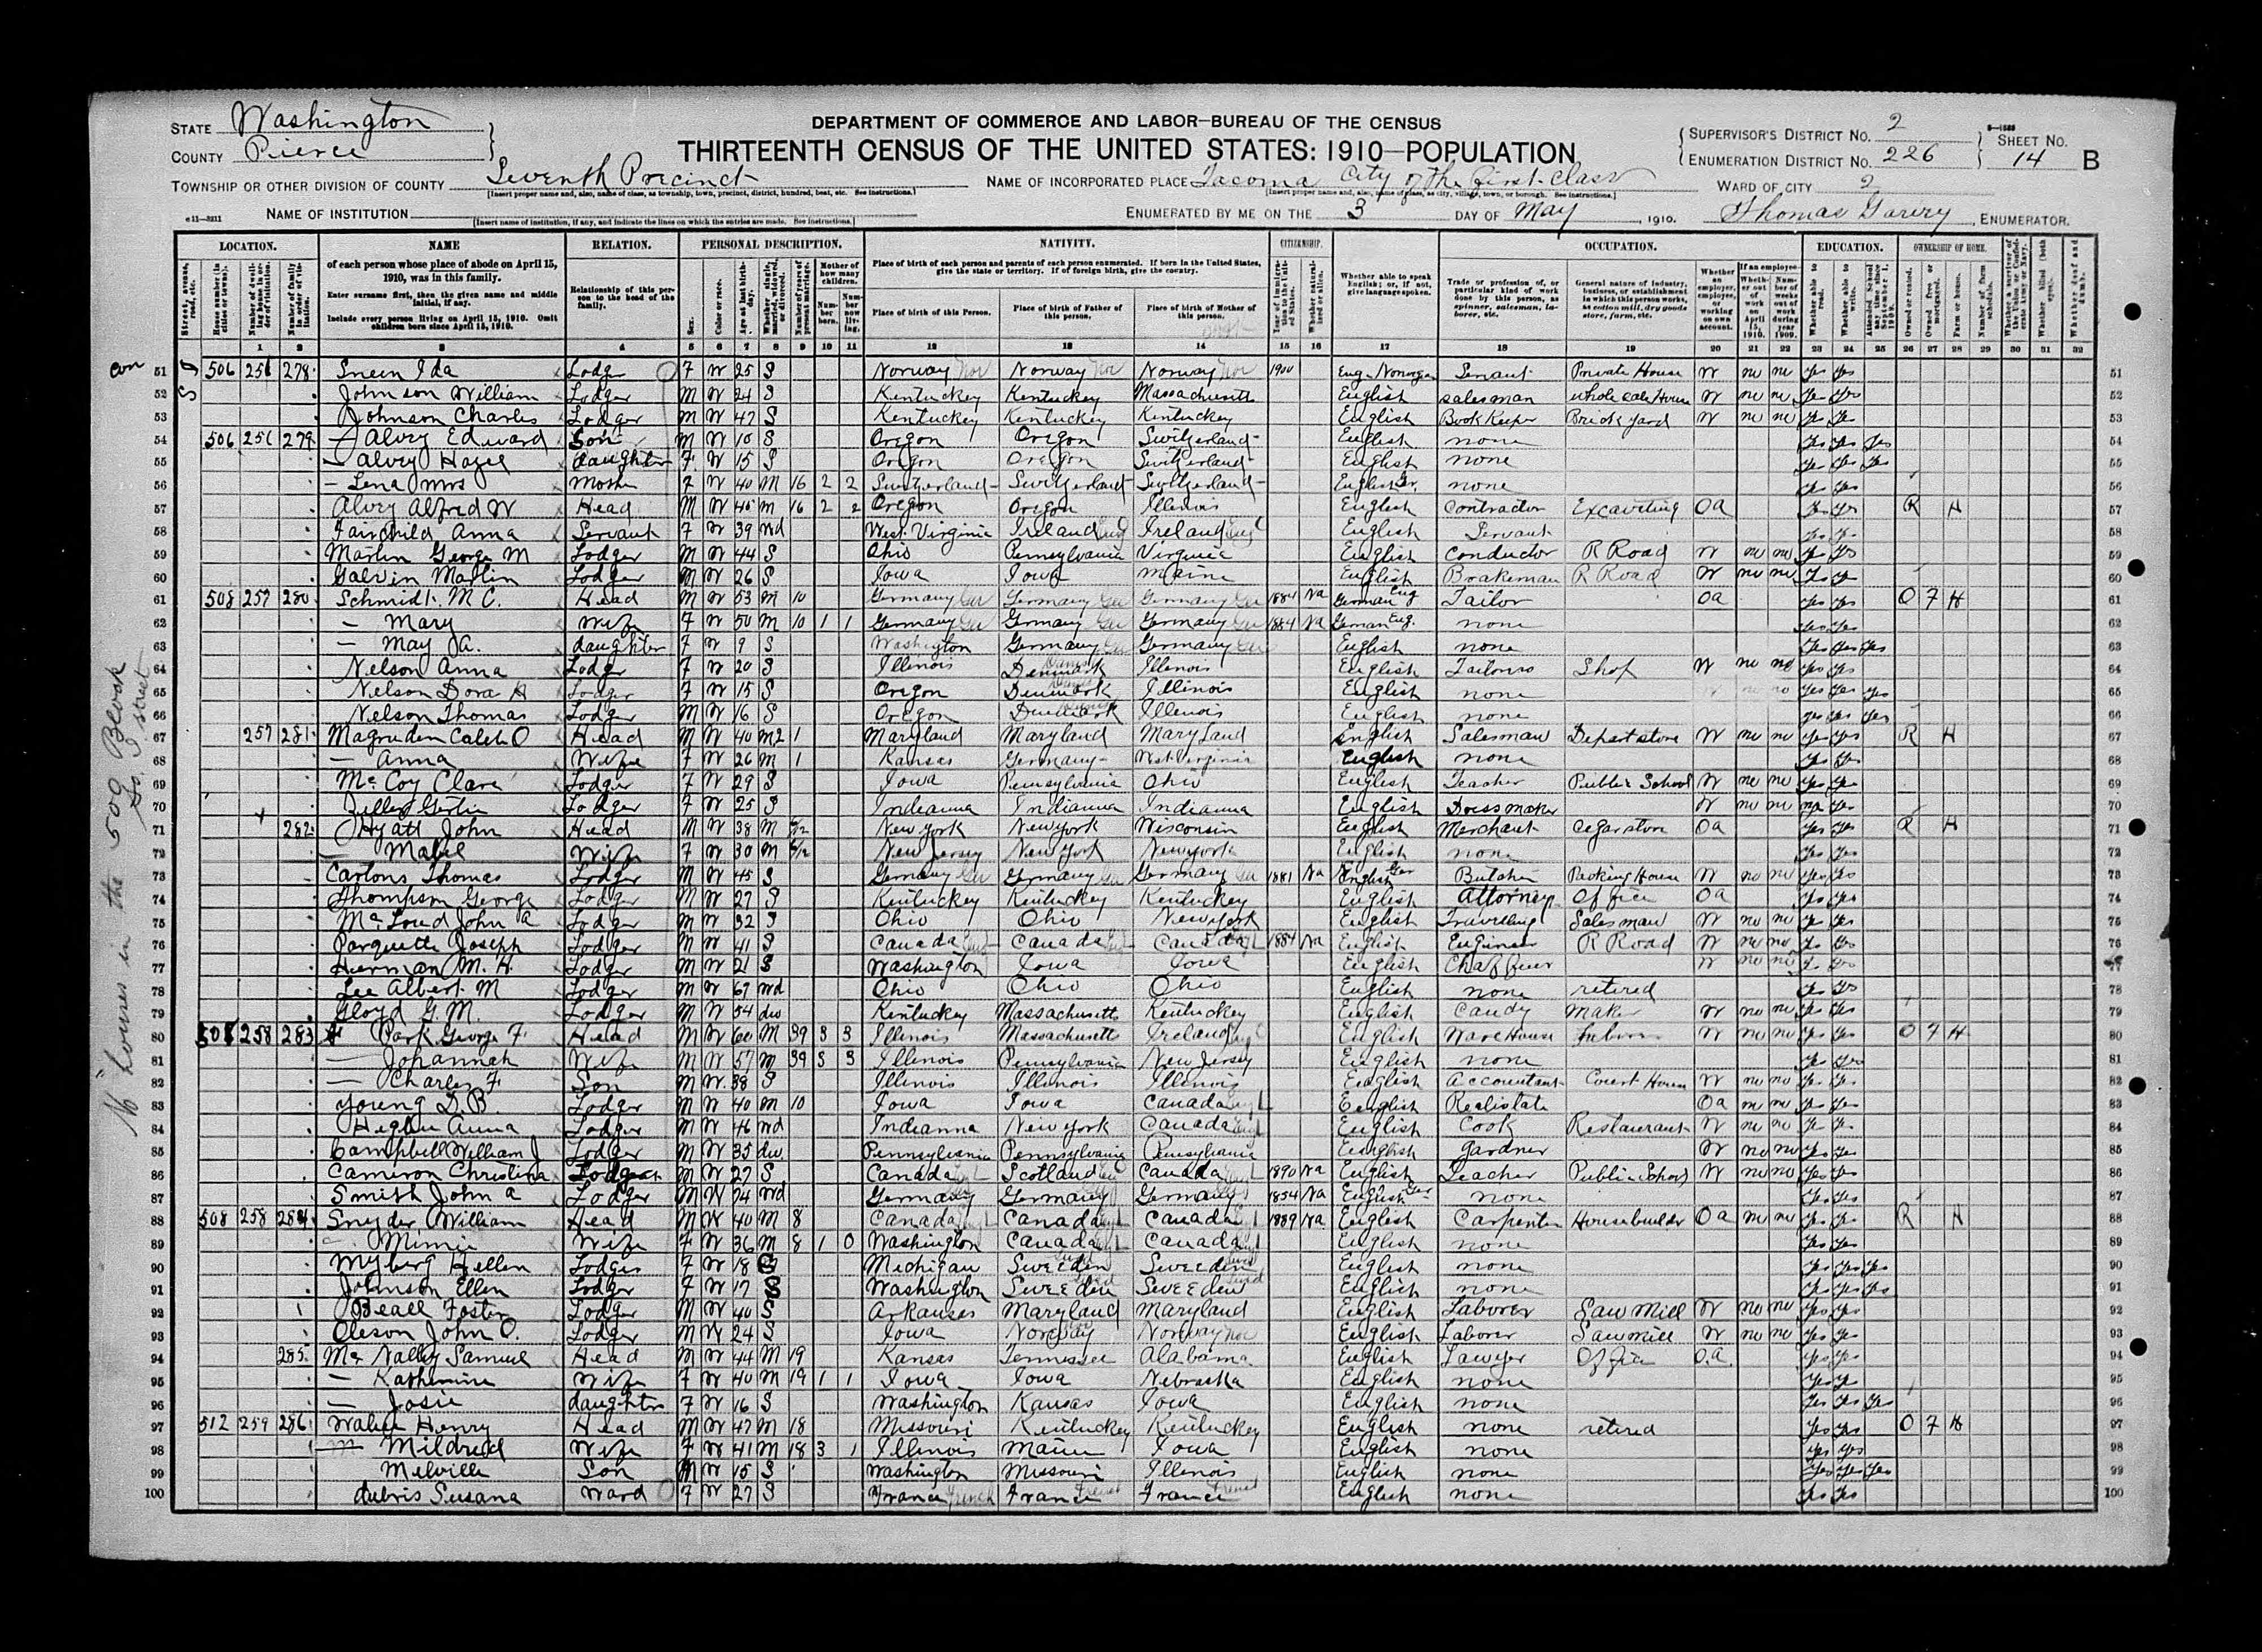 STATE Washington
COUNTY Pierce
DEPARTMENT OF COMMERCE AND LABOR—BUREAU OF THE CENSUS
THIRTEENTH CENSUS OF THE UNITED STATES: 1910—POPULATION
SUPERVISOR'S DISTRICT No. 2
ENUMERATION DISTRICT No. 226
SHEET No. 14 B
TOWNSHIP OR OTHER DIVISION OF COUNTY Seventh Precinct
NAME OF INCORPORATED PLACE Tacoma City of the first-class
WARD OF CITY 2
NAME OF INSTITUTION
ENUMERATED BY ME ON THE 3 DAY OF May, 1910. Thomas, ENUMERATOR.
LOCATION. NAME RELATION. PERSONAL DESCRIPTION. NATIVITY. CITIZENSHIP. OCCUPATION. EDUCATION. OWNERSHIP OF HOME.
of each person whose place of abode on April 15, 1910, was in this family.
Enter surname first, then the given name and middle initial, if any.
Include every person living on April 15, 1910. Omit children born since April 15, 1910.
Relationship of this person to the head of the family.
Place of birth of each person and parents of each person enumerated. If born in the United States, give the state or territory. If of foreign birth, give the country.
Place of birth of this Person. Place of birth of Father of this person. Place of birth of Mother of this person.
Whether able to speak English; or, if not, give language spoken.
1 2 3 4 5 6 7 8 9 10 11 12 13 14 15 16 17 18 19 20 21 22 23 24 25 26 27 28 29 30 31 32
51 506 256 278 Ida Lodger F W 25 S Norway Norway Norway 1900 Servant Private House W no no yes yes 51
52 Johnson William Lodger M W 24 S Kentuckey Kentuckey Massachusetts English salesman whole sale House W no no yes yes 52
53 Johnson Charles Lodger M W 47 S Kentuckey Kentuckey Kentuckey English Book Keeper Brick yard W no no yes yes 53
54 506 256 279 — Alvry Edward Son M W 10 S Oregon Oregon Switzerland English none yes yes yes 54
55 — Alvry Hazel daughter F W 15 S Oregon Oregon Switzerland English none yes yes yes 55
56 — Lena Mrs F W 40 M 16 2 2 Switzerland Switzerland Switzerland English none yes yes 56
57 Alvry Alfred W Head M W 45 M 16 2 2 Oregon Oregon Illinois English Contractor Excavating Oa yes yes R H 57
58 Fairchild Anna Servant F W 39 Wd West Virginia Ireland Ireland English Servant 58
59 Martin George M Lodger M W 44 S Ohio Pennsylvania Virginia English Conductor R Road W no no yes yes 59
60 Galvin Martin Lodger M W 26 S Iowa Iowa Maine English Brakeman R Road W no no yes yes 60
61 508 257 280 Schmidt. M C. Head M W 53 M 10 Germany Germany Germany 1884 Na German Eng Tailor Oa yes yes O F H 61
62 — Mary Wife F W 50 M 10 1 1 Germany Germany Germany 1884 Na German Eng. none yes yes 62
63 — May A. daughter F W 9 S Washington Germany Germany English none yes yes yes 63
64 Nelson Anna Lodger F W 20 S Illinois Denmark Illinois English Shop W no no yes yes 64
65 Nelson Dora H Lodger F W 15 S Oregon Denmark Illinois English none yes yes yes 65
66 Nelson Thomas Lodger M W 16 S Oregon Denmark Illinois English none yes yes yes 66
67 257 281 Caleb O Head M W 40 M2 1 Maryland Maryland Maryland English Salesman Depart store W no no yes yes R H 67
68 — Anna Wife F W 26 M 1 Kansas Germany West Virginia English none yes yes 68
69 Mc Coy Clara Lodger F W 29 S Iowa Pennsylvania Ohio English Teacher Public School W no no yes yes 69
70 Lodger F W 25 S Indianna Indianna Indianna English Dressmaker W no no no yes 70
71 282 Hyatt John Head M W 38 M New York New York Wisconsin English Merchant cegar store Oa yes yes R H 71
72 — Mabel Wife F W 30 M New Jersey New York New York English none yes yes 72
73 Cartons Thomas Lodger M W 45 S Germany Germany Germany 1881 Na English Ger Butcher Packing House W no no yes yes 73
74 Thompson George Lodger M W 27 S Kentuckey Kentuckey Kentuckey English Attorney Office Oa yes yes 74
75 Mc Loud John A Lodger M W 32 S Ohio Ohio New York English Travelling Salesman W no no yes yes 75
76 Parquette Joseph Lodger M W 41 S Canada Canada Canada 1884 Na English Engineer R Road W no no yes yes 76
77 Herman M. H. Lodger M W 21 S Washington Iowa Iowa English Chaffeur W no no yes yes 77
78 Lee Albert M Lodger M W 67 Wd Ohio Ohio Ohio English none retired yes yes 78
79 Gloyd G. M. Lodger M W 54 div Kentuckey Massachusetts Kentuckey English Candy Maker W no no yes yes 79
80 258 283 Park George F. Head M W 60 M 39 3 3 Illinois Massachusetts Ireland English Ware House W no no yes yes O F H 80
81 — Johannah Wife M W 57 M 39 3 3 Illinois Pennsylvania New Jersey English none yes yes 81
82 — Charles F. Son M W 38 S Illinois Illinois Illinois English Accountant Court House W no no yes yes 82
83 Young D. B. Lodger M W 40 M 10 Iowa Iowa Canada English Realistate Oa no no yes yes 83
84 Anna Lodger M W 46 Wd Indianna New York Canada English Cook Restaurant W no no yes yes 84
85 Campbell William J Lodger M W 35 div. Pennsylvania Pennsylvania Pennsylvania English Gardner W no no yes yes 85
86 Cameron Christina Lodger M W 27 S Canada Scotland Canada 1890 Na English Teacher Public School W no no yes yes 86
87 Smith John A Lodger M W 74 Wd Germany Germany Germany 1854 Na English none yes yes 87
88 508 258 284 Snyder William Head M W 40 M 8 Canada Canada Canada 1889 Na English Carpenter House builder Oa no no yes yes R H 88
89 — Minnie Wife F W 36 M 8 1 0 Washington Canada Canada English none yes yes 89
90 Myberg Hellen Lodger F W 18 S Michigan Sweeden Sweeden English none yes yes yes 90
91 Johnson Ellen Lodger F W 17 S Washington Sweeden Sweeden English none yes yes yes 91
92 Beall Foster Lodger M W 40 S Arkansas Maryland Maryland English Laborer Saw Mill W no no yes yes 92
93 Oleson John O. Lodger M W 24 S Iowa Norway Norway English Laborer Sawmill W no no yes yes 93
94 285 Mc Nally Samuel Head M W 44 M 19 Kansas Tennessee Alabama English Lawyer Office O.a. yes yes 94
95 — Katherine Wife F W 40 M 19 1 1 Iowa Iowa Nebraska English none yes yes 95
96 — Josie daughter F W 16 S Washington Kansas Iowa English none yes yes yes 96
97 512 259 286 Henry Head M W 47 M 18 Missouri Kentuckey Kentuckey English none retired yes yes O F H 97
98 — Mildred Wife F W 41 M 18 3 1 Illinois Maine Iowa English none yes yes 98
99 Melville Son M W 15 S Washington Missouri Illinois English none yes yes yes 99
100 Susana Ward F W 27 S France France France English none yes yes 100
No houses in the 509 Block
So. J street